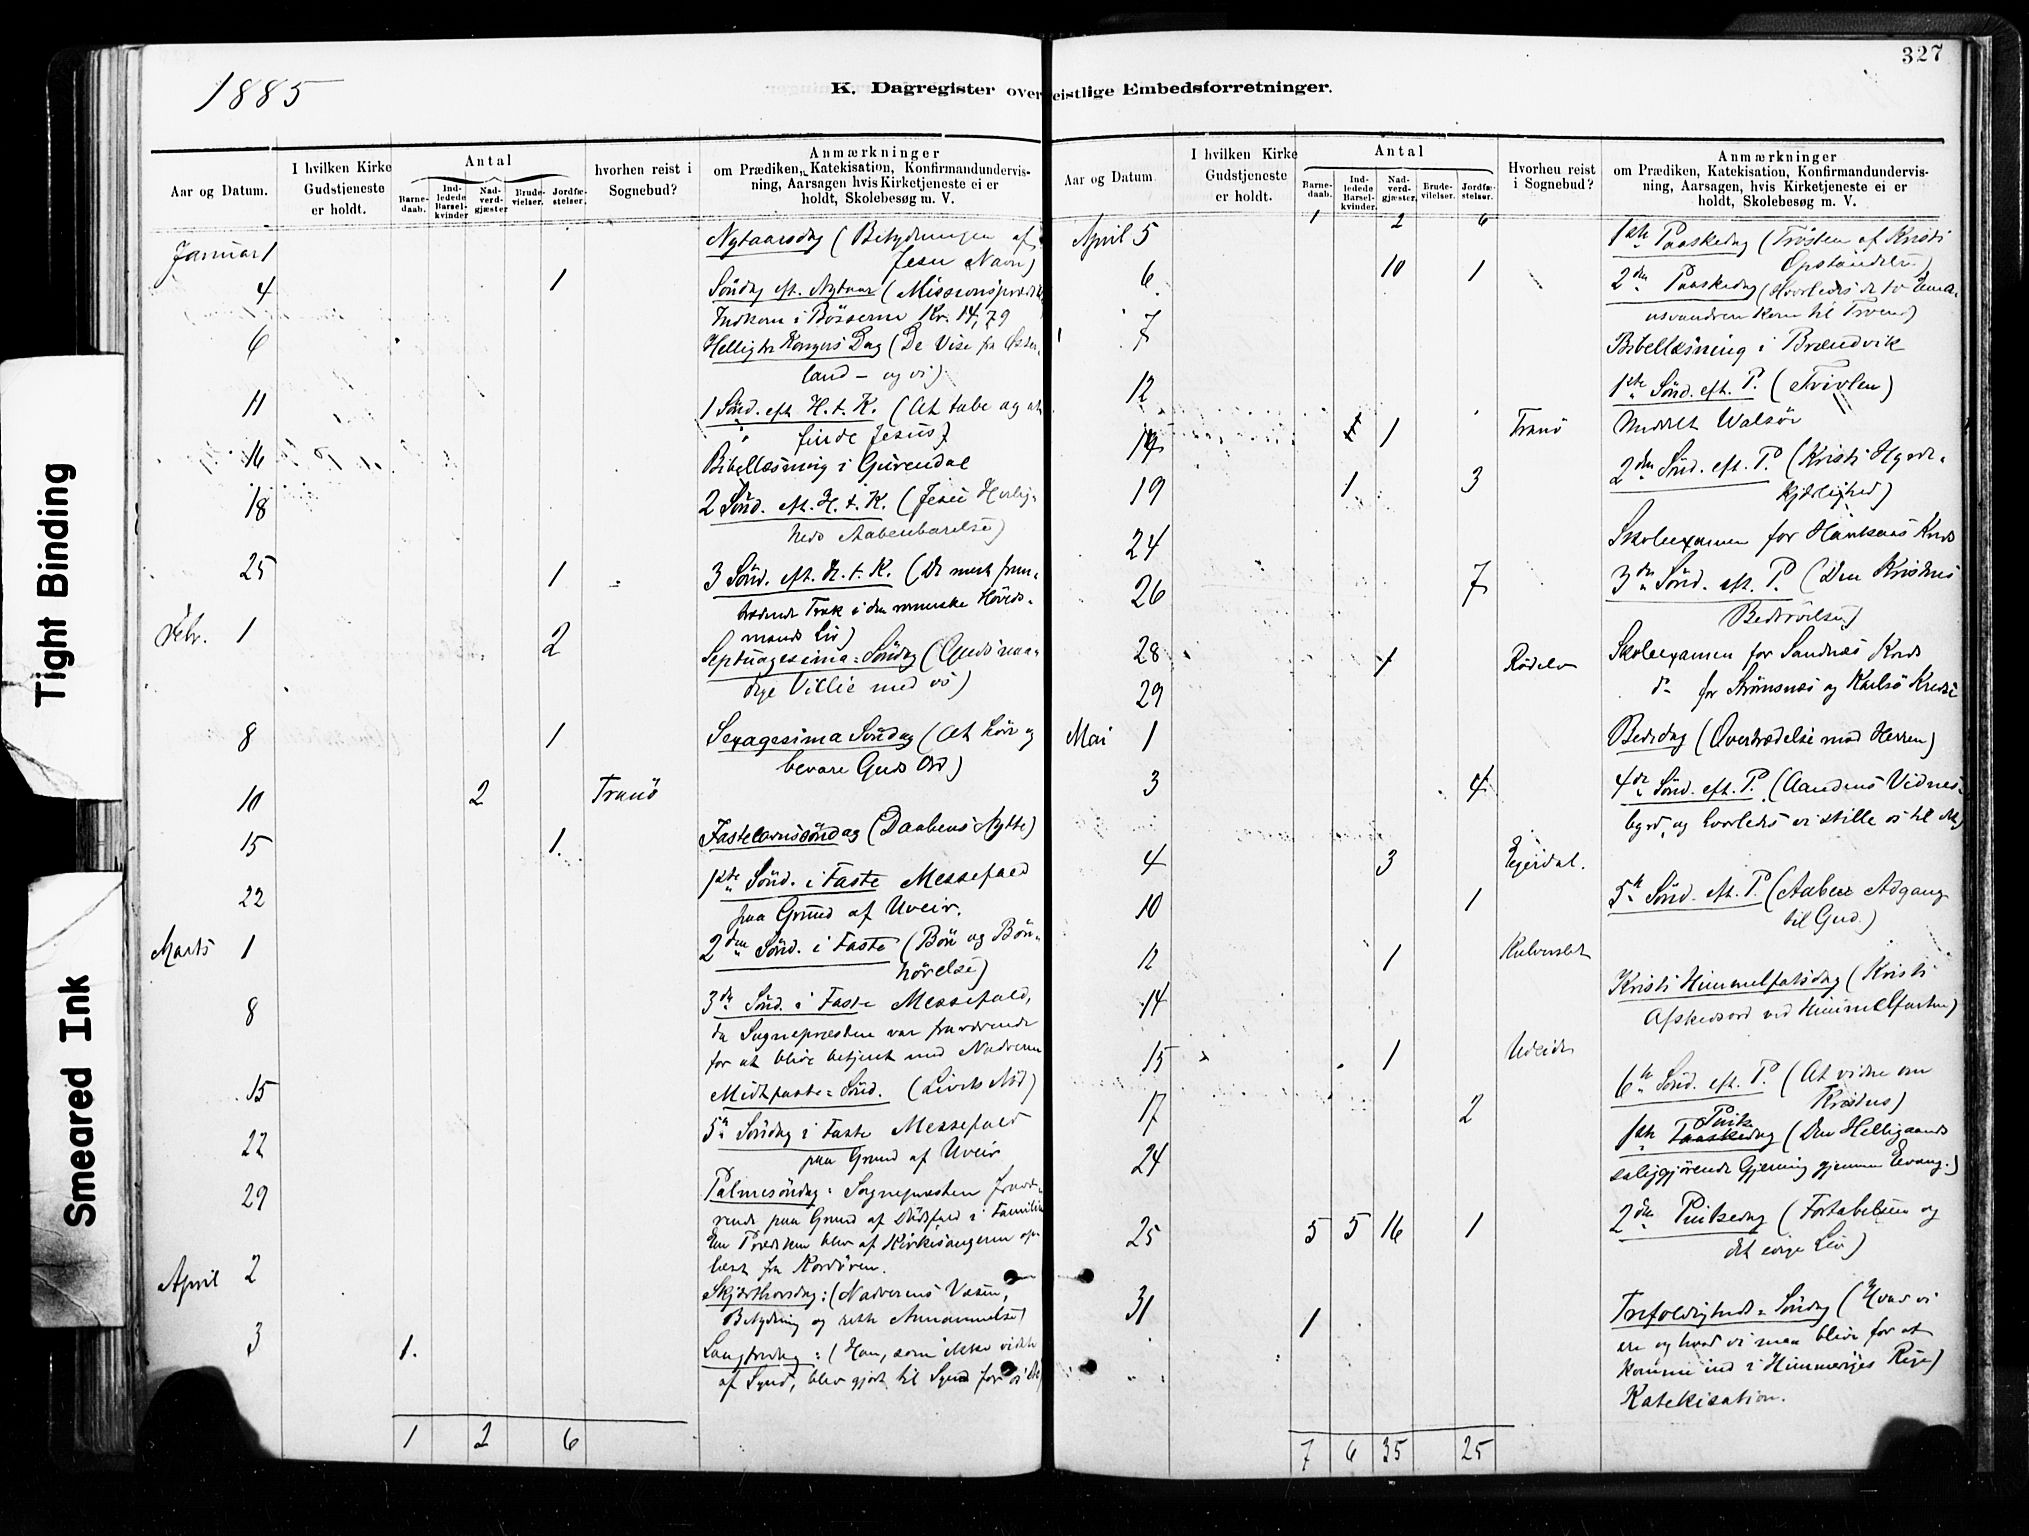 327
1885
K. Dagregister over geistlige Embedsforretninger.
Tight Binding
Smeared Ink
Aar og Datum.
I hvilken Kirke
Gudstjeneste
er holdt.
Antal
Barne-
daab.
Ind-
ledede
Barsel-
kvinder
Nad-
verd-
gjæster
Brude-
vielser.
Jordfæ-
stelser.
hvorhen reist i
Sognebud?
Anmærkninger
om Prædiken, Katekisation, Konfirmandundervis-
ning, Aarsagen hvis Kirketjeneste ei er
holdt, Skolebesøg m. V.
Januar 1 Nytaarsdag (Betydningen af
Jesu Navn)
4 1 Söndag eft. Nytaar (Missionspræd
Indkom i Bösserne Kr. 14,79
6 Helligtre Kongers Dag (De Vise fra Öster-
land – og vi)
11 1 Sönd. eft. H. t. K. (At tabe og at
finde Jesus)
16 Bibellæsning i Gurendal
18 2 Sönd. eft. H. t. K. (Jesu Herlig-
heds Aabenbarelse)
25 1 3 Sönd. eft. H. t. K. (De mest frem-
trædende Træk i den romerske Høveds-
mands Liv)
Febr. 1 2 Septuagesima-Söndag (Guds naa-
dige Villie med os)
8 1 Sexagesima Söndag (At höre og
bevare Guds Ord)
10 2 Tranö
15 1. Fastelavnssöndag (Daabens Nytte)
22 1ste Sönd. i Faste Messefald
paa Grund af Uveir.
Marts 1 2den Sönd. i Faste (Bön og Bön-
hörelse)
8 3de Sönd. i Faste Messefald,
da Sognepræsten var fraværende
for at blive betjent med Nadveren
15 Midtfaste-Sönd. (Livets Nöd)
22 5te Söndag i Faste Messefald
paa Grund af Uveir
29 Palmesöndag: Sognepræsten fravæ-
rende paa Grund af Dödsfald i Familien
En Prædiken blev af Kirkesangeren op-
læst fra Kordören.
April 2 Skjærthorsdag: (Nadverens Væsen,
Betydning og rette Annammelse)
3 1. Langfredag: (Han, som ikke vidste
af Synd, blev gjort til Synd for os
1 2 6
Aar og Datum
I hvilken Kirke
Gudstjeneste
er holdt.
Antal
Barne-
daab.
Ind-
ledede
Barsel-
kvinder.
Nad-
verd-
gjæster.
Brude-
vilelser.
Jordfæ-
stelser.
Hvorheu reist
i Sognebud?
Anmærkninger
om Prædiken, Katekisation, Konfirmandundervis-
ning, Aarsagen, hvis Kirketjeneste ei er
holdt, Skolebesøg m. V.
April 5 1 2 6 1ste Paaskedag (Trösten af Kristi
Opstandelse)
6 10 1 2den Paaskedag (Hvorledes de to Ema-
usvandrere kom til Troen)
7 Bibellæsning i Brændvik
12 1ste Sönd. eft. P. (Tvivlen)
14 1 Tranö Meddelt Walsör
19 1 3 2den Sönd. eft. P. (Kristi Hyrde-
kjærlighed)
24 Skoleexamen for Kreds
26 7 3die Sönd. eft. P. (Den Kristnes
Bedrövelse)
28 1 Rödelv Skoleexamen for Sandnæs Kreds
29 do for Strömsnæs og Karlsö Kredse
Mai 1 Bededag (Overtrædelse mod Herren)
3 4 4de Sönd. eft. P. (Aandens Vidnes-
byrd, og hvorledes vi stille os til det)
4 3
10 1 5te Sönd. eft. P. (Aaben Adgang
til Gud.)
12 1
14 Kristi Himmelfartsdag (Kristi
Afskedsord ved Himmelfarten)
15 1
17 2 6te Sönd. eft. P. (At vidne om
Kristus)
24 1ste Pintsedag (Den Helligaands
saliggjörende Gjerning gjennem Evang.)
25 5 5 16 1 2den Pintsedag (Fortabelsen og
det evige Liv)
31 1 Trefoldigheds-Söndag (Hvad vi
ere og hvad vi maa blive for at
komme ind i Himmeriges Rige)
" " Katekisation.
7 6 35 25